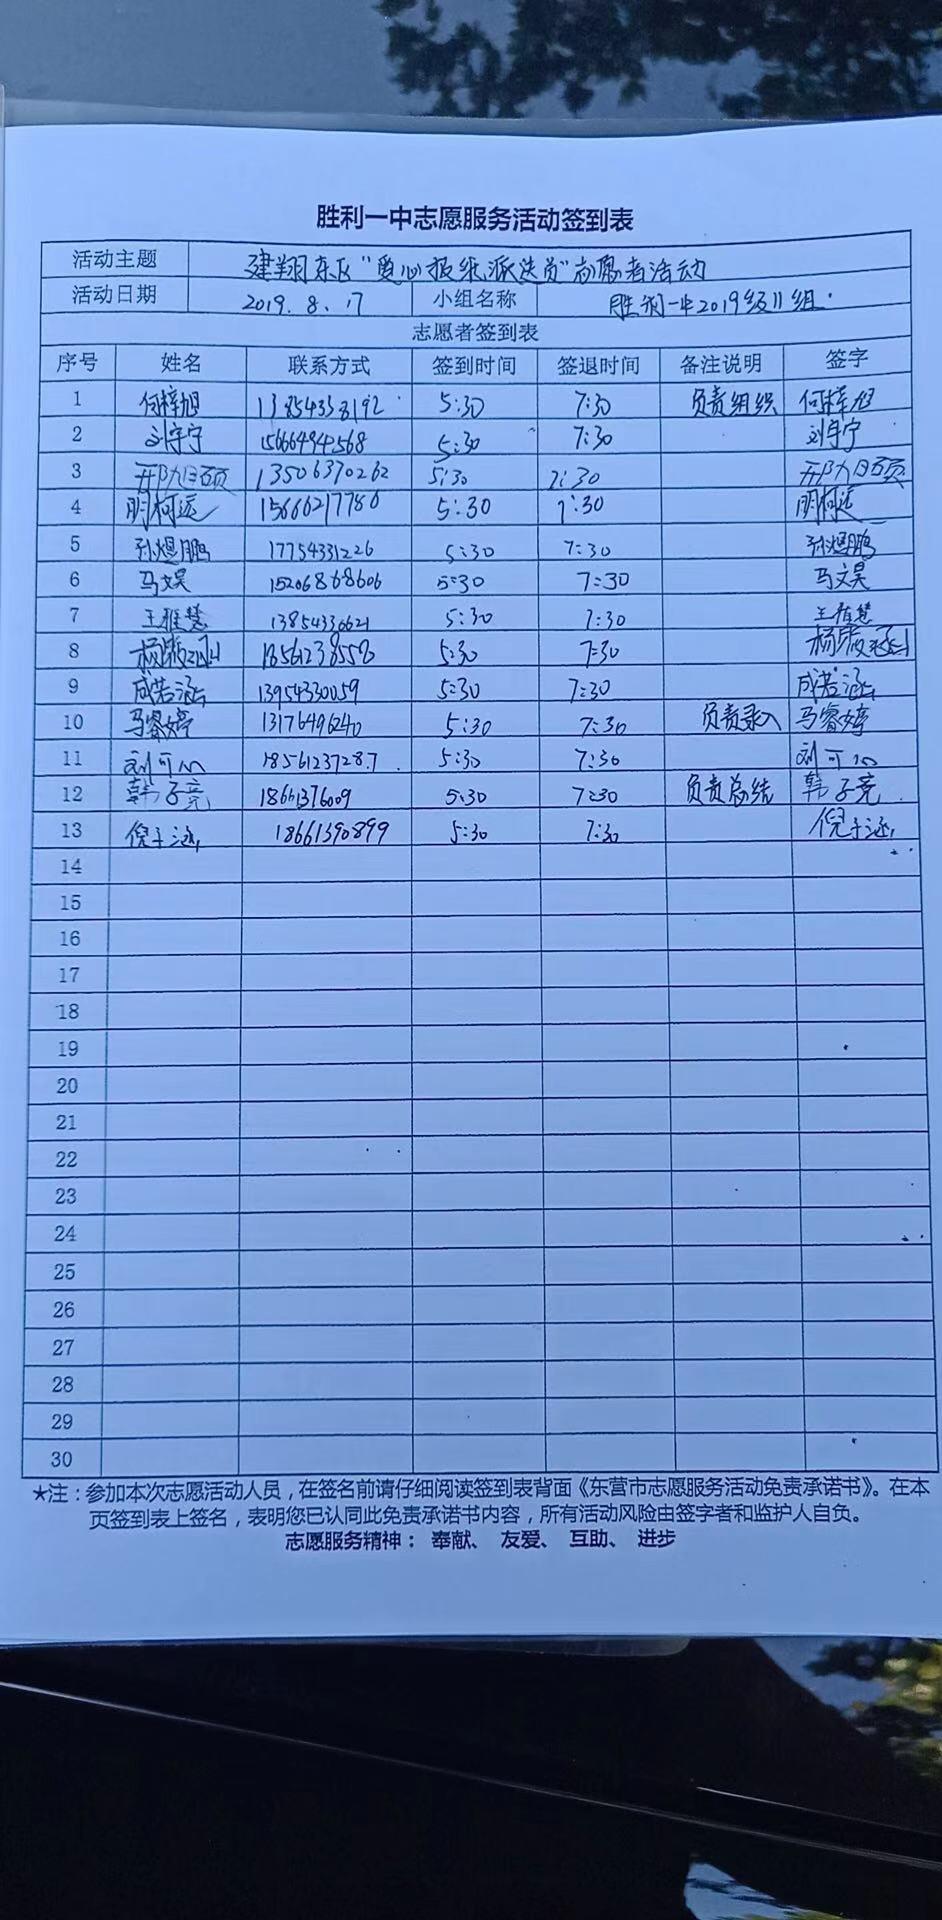 胜利一中志愿服务活动签到表
活动主题 建翔东区“爱心报纸派送员”志愿者活动
活动日期 2019.8.17 小组名称 胜利一中2019级11组
志愿者签到表
序号 姓名 联系方式 签到时间 签退时间 备注说明 签字
1 何梓旭 13854338192 5:30 7:30 负责组织 何梓旭
2 刘宇宁 15666494568 5:30 7:30 刘宇宁
3 13506370262 5:30 7:30
4 明柯运 15666217780 5:30 7:30 明柯运
5 孙煜鹏 17754331226 5:30 7:30 孙煜鹏
6 马文昊 15206868606 5:30 7:30 马文昊
7 王雅慧 13854336621 5:30 7:30 王雅慧
8 18561238558 5:30 7:30
9 成若涵 13954330059 5:30 7:30 成若涵
10 马睿婷 13176496240 5:30 7:30 负责录入 马睿婷
11 刘可心 18561237287 5:30 7:30 刘可心
12 韩子尧 18661376009 5:30 7:30 负责总结 韩子尧
13 倪子涵 18661390899 5:30 7:30 倪子涵
14
15
16
17
18
19
20
21
22
23
24
25
26
27
28
29
30
★注：参加本次志愿活动人员，在签名前请仔细阅读签到表背面《东营市志愿服务活动免责承诺书》。在本
页签到表上签名，表明您已认同此免责承诺书内容，所有活动风险由签字者和监护人自负。
志愿服务精神： 奉献、 友爱、 互助、 进步